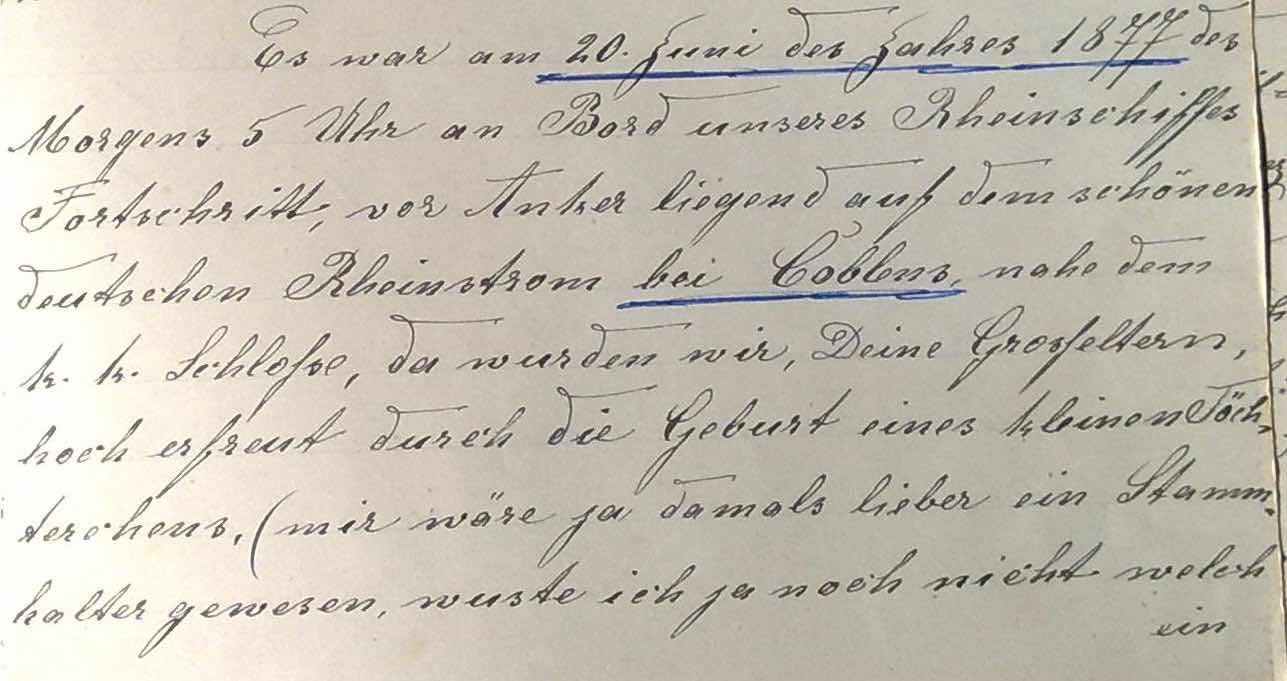 Es war am 20. Juni des Jahres 1877 des
Morgens 5 Uhr an Bord unseres Rheinschiffes
Fortschritt, vor Anker liegend auf dem schönen
deutschen Rheinstrom bei Coblens, nahe dem
k. k. Schloße, da wurden wir, Deine Grosseltern,
hoch erfreut durch die Geburt eines kleinen Töch-
terchens, (mir wäre ja damals lieber ein Stamm-
halter gewesen, wuste ich ja noch nicht welch
ein